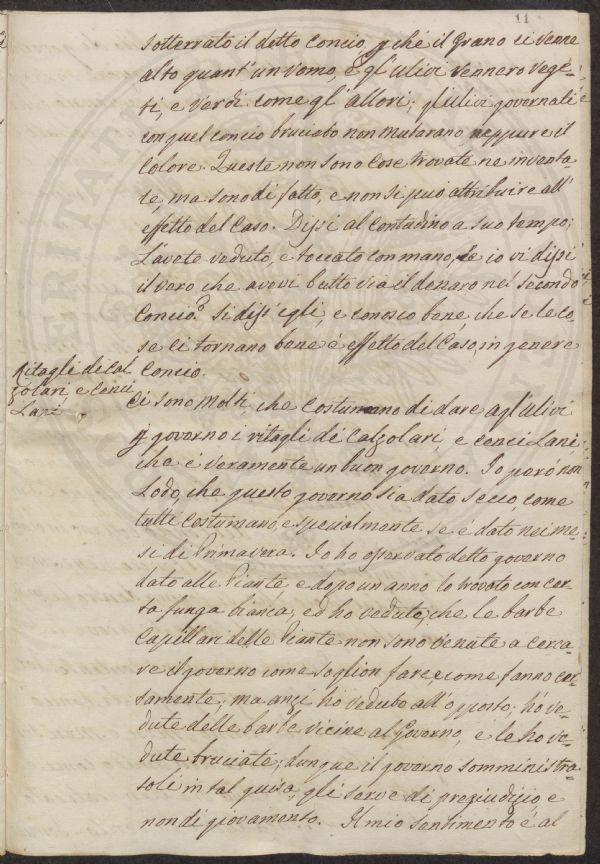 11
sotterrato il detto Concio, p chè il Grano ci venne
alto quant' un Uomo, e gl' Ulivi vennero vege-
ti, e verdi come gl' allori; gl' Ulivi governati
con quel concio bruciato non mutarano, neppure il
Colore. Queste non sono Cose trovate ne inventa
te, ma sono di fatto, e non si può attribuire all'
effetto del Caso. Dissi al Contadino a suo tempo;
L'avete veduto, e toccato con mano, se io vi dissi
il vero che avevi butto via il denaro nel secondo
Concio? si diss' egli, e conosco bene, che se le co,
se ci tornano bene è effetto del Caso, in genere
Concio.
Ritagli di Cal
zolari, e Cenci
Lani
Ci sono Molti, che Costumano di dare agl' Ulivi
p governo i ritagli dei Calzolari, e cenci Lani,
che è veramente un buon governo. Io però non
Lodo, che questo governo sia dato secco, come
tutti Costumano, e specialmente se è dato nei me-
si di Primavera. Io ho osservato detto governo
dato alle Piante, e dopo un anno lo trovato con cer-
ta funga bianca, ed ho veduto, che le barbe
Capillari delle Piante non sono venute a cerca-
re il governo come soglion fare, e come fanno cer-
tamente; ma anzi ho veduto all' opposto; hò ve-
dute delle barbe vicine al Governo, e le ho ve-
dute bruciate; dunque il governo somministra-
toli in tal guisa, gli serve di pregiudizio, e
non di giovamento. Il mio sentimento è al